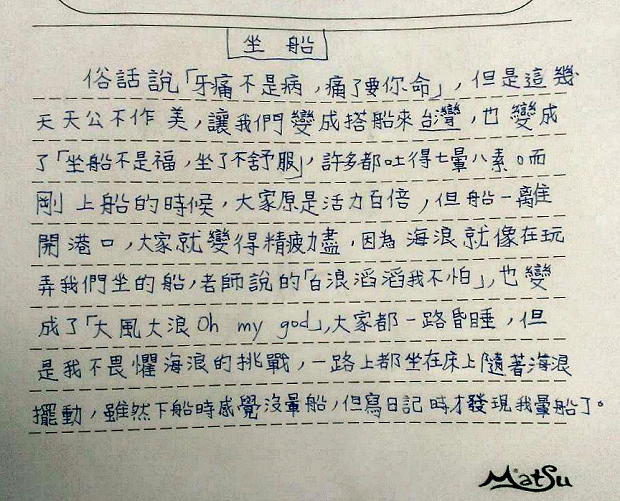 坐船
俗話說「牙痛不是病，痛了要你命」，但是這幾
天天公不作美，讓我們變成搭船來台灣，也變成
了「坐船不是福，坐了不舒服」，許多都吐得七暈八素。而
剛上船的時候，大家原是活力百倍，但船一離
開港口，大家就變得精疲力盡，因為海浪就像在玩
弄我們坐的船，老師說的「白浪滔滔我不怕」，也變
成了「大風大浪Oh my god」，大家都一路昏睡，但
是我不畏懼海浪的挑戰，一路上都坐在床上隨著海浪
擺動，雖然下船時感覺沒暈船，但寫日記時才發現我暈船了。
Matsu